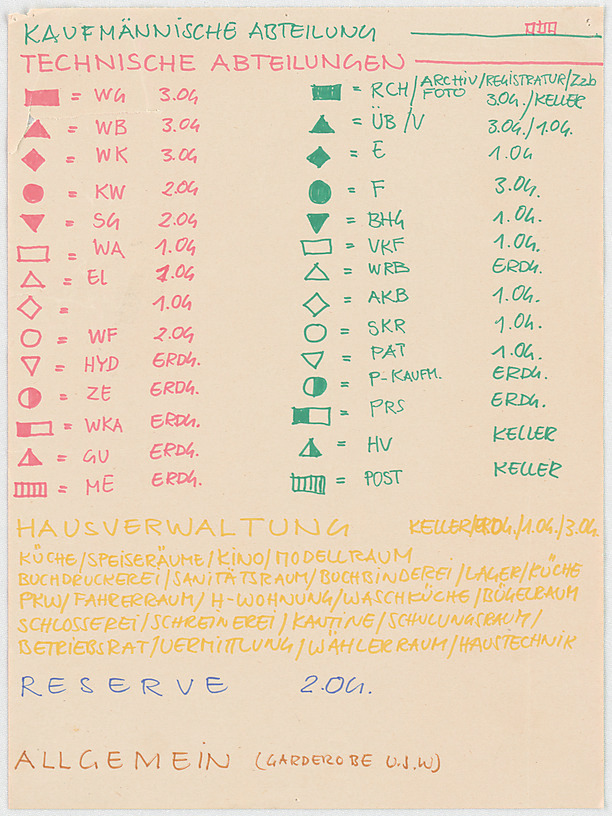 KAUFMÄNNISCHE ABTEILUNG
TECHNISCHE ABTEILUNGEN
= WG 3.OG
= WB 3.OG
= WK 3.OG
= KW 2.OG
= SG 2.OG
= WA 1.OG
= EL 1.OG
= 1.OG
= WF 2.OG
= HYD ERDG.
= ZE ERDG.
= WKA ERDG.
= GU ERDG.
= ME ERDG.
= RCH/ARCHIV/REGISTRATUR/Zzb
FOTO 3.OG./KELLER
= ÜB/V 3.OG./1.OG.
= E 1.OG
= F 3.OG.
= BHG 1.OG.
= VKF 1.OG.
= WRB ERDG.
= AKB 1.OG.
= SKR 1.OG.
= PAT 1.OG.
= P-KAUFM. ERDG.
= PRS ERDG.
= HV KELLER
= POST KELLER
HAUSVERWALTUNG KELLER/ERDG./1.OG./3.OG.
KÜCHE/SPEISERÄUME/KINO/MODELLRAUM
BUCHDRUCKEREI/SANITÄTSRAUM/BUCHBINDEREI/LAGER/KÜCHE
PKW/FAHRERRAUM/H-WOHNUNG/WASCHKÜCHE/BÜGELRAUM
SCHLOSSEREI/SCHREINEREI/KANTINE/SCHULUNGSRAUM/
BETRIEBSRAT/VERMITTLUNG/WÄHLERRAUM/HAUSTECHNIK
RESERVE 2.OG.
ALLGEMEIN (GARDEROBE U.S.W)